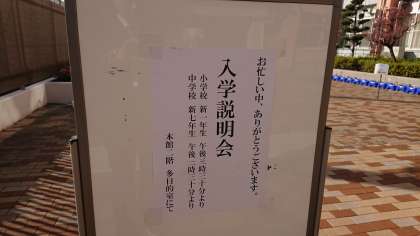 お忙しい中、ありがとうございます。
入学説明会
小学校 新一年生 午後三時三十分より
中学校 新七年生 午後二時三十分より
本館二階 多目的室にて